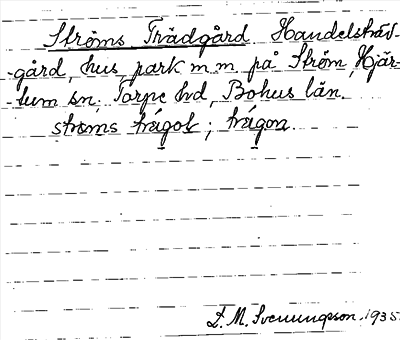 Ströms Trädgård Handelsträd-
-gård, hus, park m m. på Ström, Hjär-
-tum sn. Torpe hd, Bohus län.
ströms trágoḷ; trágon.
D. M. Svenungsson. 1935.